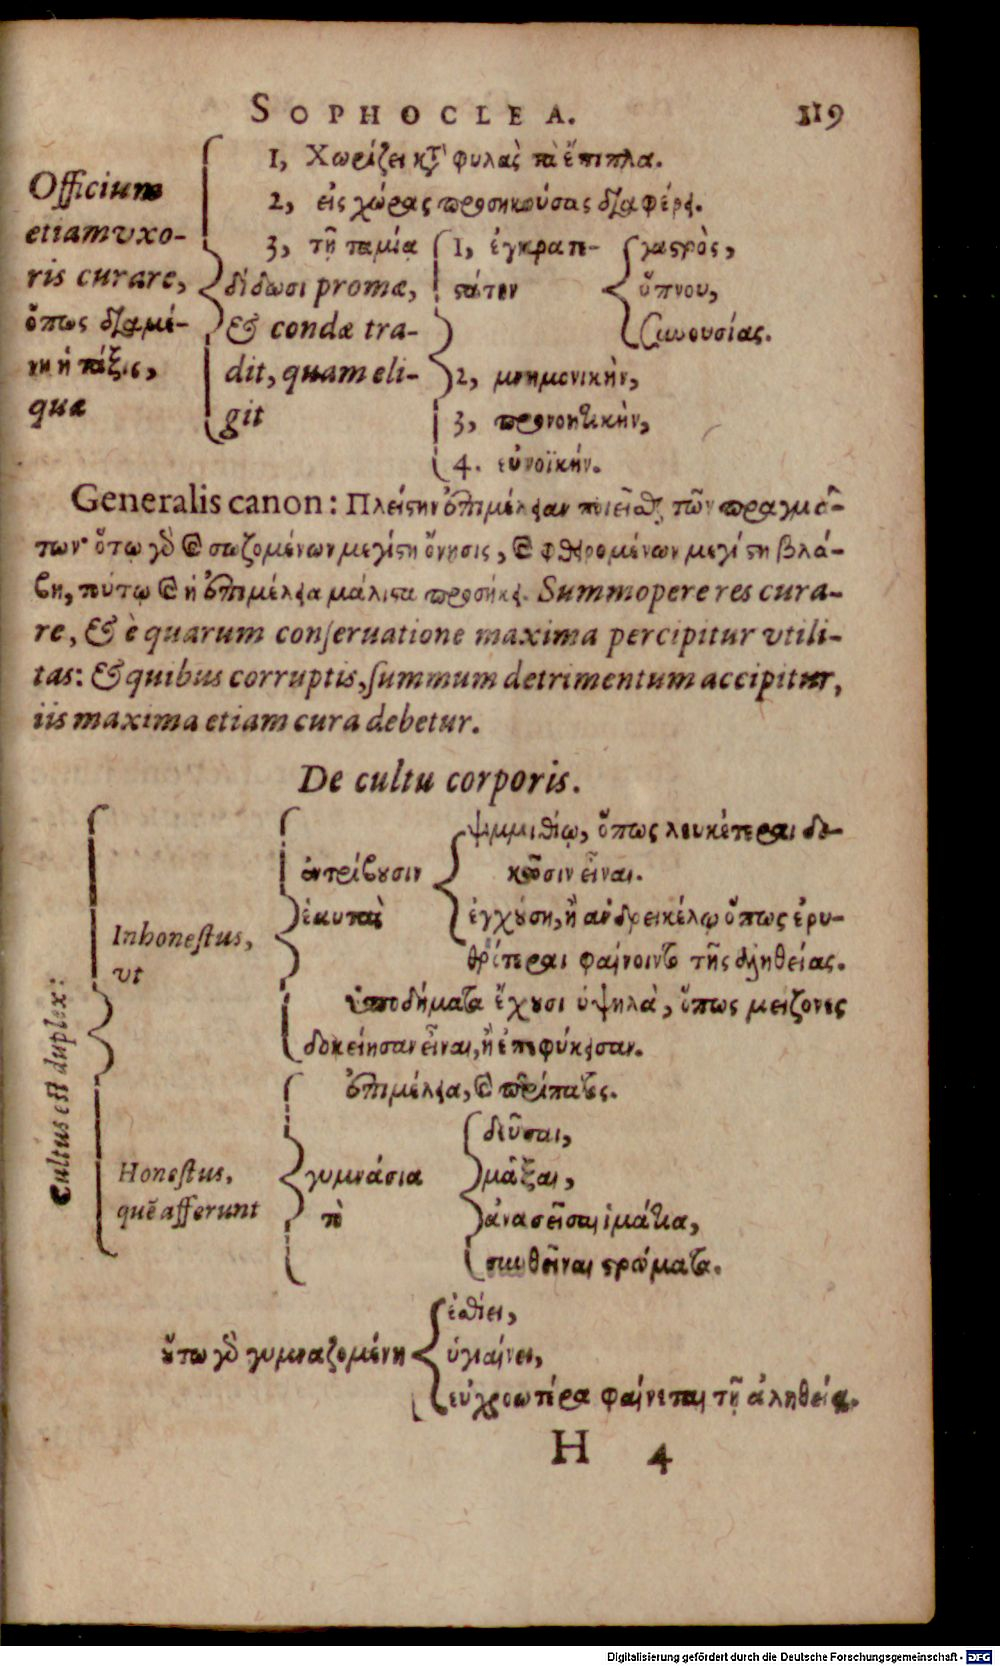 SOPHOCLEA. 119
Officium
etiam vxo-
ris curare,
ὅπως διαμέ-
νῃ ἡ τάξις,
quæ
1, Χωρίζει κτ' φυλὰς τὰ ἔπιπλα.
2, εἰς χώρας προσηκούσας διαφέρει.
3, τῇ ταμίᾳ
δίδωσι promæ,
& condæ tra-
dit, quam eli-
git
1, ἐγκρατε-
στάτην
γαστρὸς,
ὕπνου,
συνουσίας.
2, μνημονικὴν,
3, προνοητικὴν,
4. εὐνοϊκήν.
Generalis canon: Πλείστην ἐπιμέλειαν ποιεῖσθαι τῶν πραγμά-
των· ὅτῳ γὸ καὶ σωζομένων μεγίστη ὄνησις, καὶ φθειρομένων μεγίστη βλά-
βη, τούτῳ καὶ ἡ ἐπιμέλεια μάλιστα προσήκει. Summopere res cura-
re, & è quarum conseruatione maxima percipitur vtili-
tas: & quibus corruptis, summum detrimentum accipitur,
iis maxima etiam cura debetur.
De cultu corporis.
Cultus est duplex:
Inhonestus,
vt
ἐντρίβουσιν
ἑαυτὰς
ψιμμιθίῳ, ὅπως λευκότεραι δο-
κῶσιν εἶναι.
ἐγχούσῃ, ἢ ἀνδρεικέλῳ ὅπως ἐρυ-
θρότεραι φαίνοιντο τῆς ἀληθείας.
ὑποδήματα ἔχουσι ὑψηλὰ, ὅπως μείζονες
δοκείησαν εἶναι, ἢ ἐπεφύκεισαν.
Honestus,
quē afferunt
ἐπιμέλεια, καὶ περίπατος.
γυμνάσια
τὸ
δεῦσαι,
μᾶξαι,
ἀνασεῖσαι ἱμάτια,
συνθεῖναι στρώματα.
οὕτω γὸ γυμναζομένη
ἐσθίει,
ὑγιαίνει,
εὐχροωτέρα φαίνεται τῇ ἀληθείᾳ.
H 4
Digitalisierung gefördert durch die Deutsche Forschungsgemeinschaft - DFG